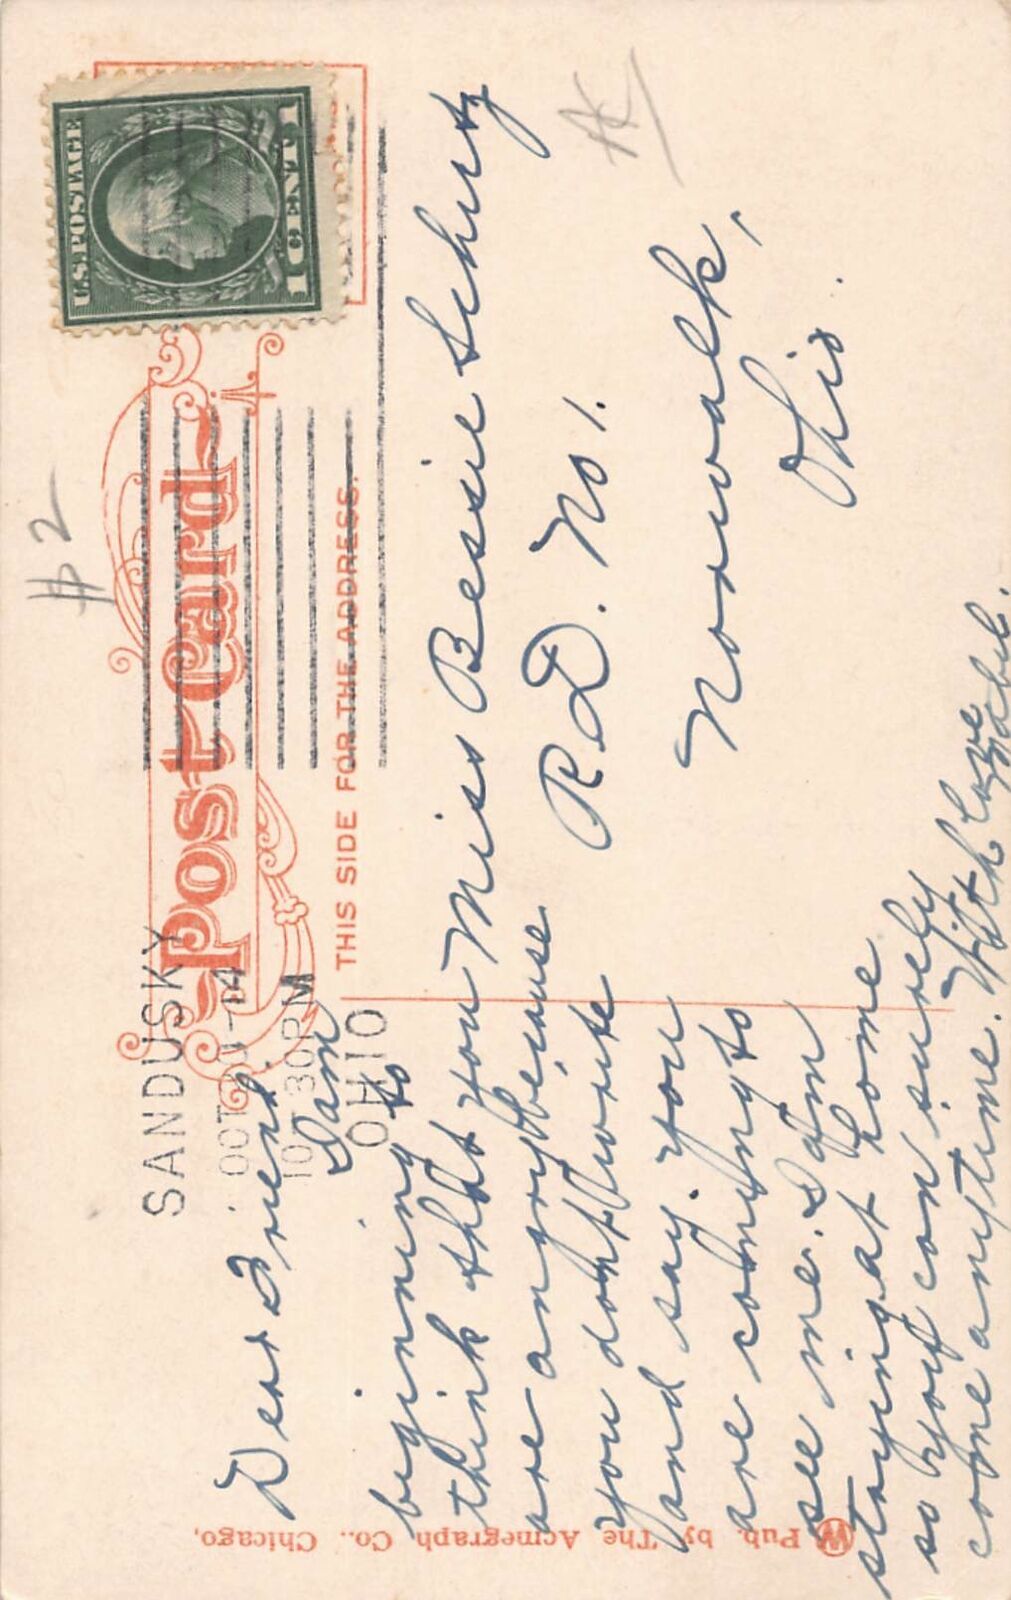 #2
U.S. POSTAGE
1 CENT 1
Post Card
THIS SIDE FOR THE ADDRESS.
SANDUSKY
OCT
10 30 PM
OHIO
Dear Friend.
I am
beginning to
think that you
are angry because
you dont write
and say you
are coming to
see me. I am
staying at home
so you can surely
come anytime. With love
Mabel.
Miss Bessie Schutz
R.D. No 1.
Norwalk,
Ohio.
Pub. by The Acmegraph Co., Chicago,